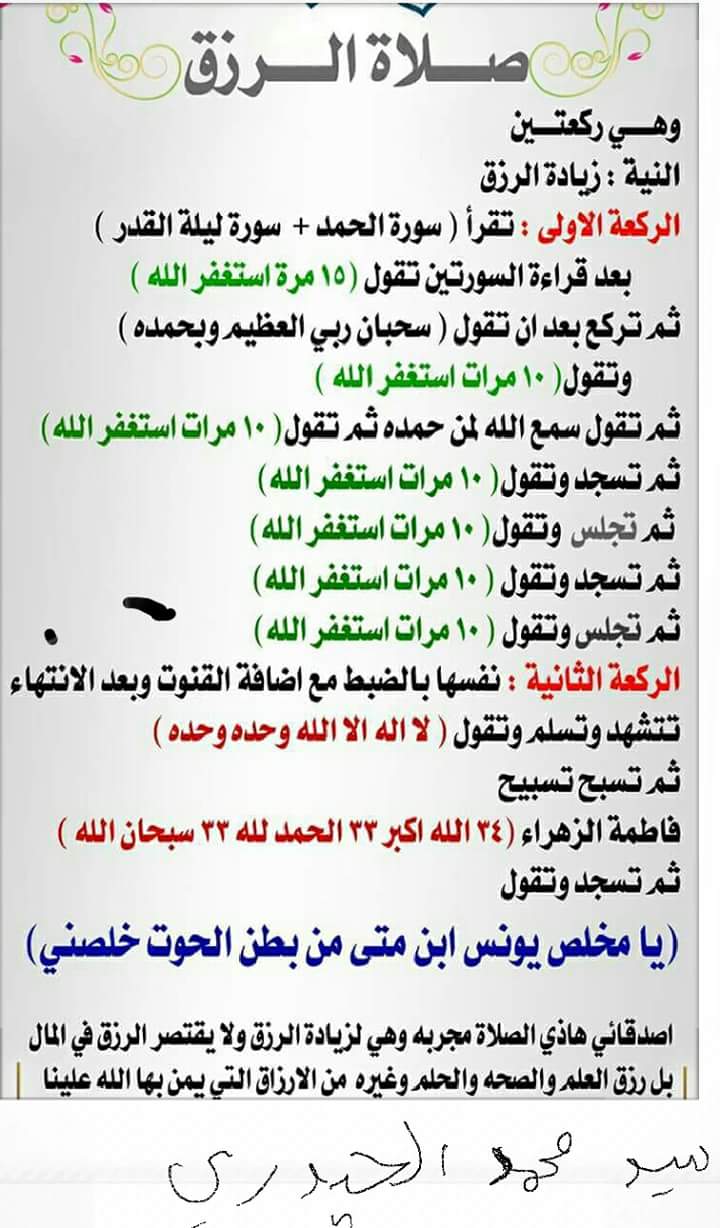 صلاة الرزق
وهي ركعتين
النية : زيادة الرزق
الركعة الاولى : تقرأ ( سورة الحمد + سورة ليلة القدر )
بعد قراءة السورتين تقول ( ١٥ مرة استغفر الله )
ثم تركع بعد ان تقول ( سحبان ربي العظيم وبحمده )
وتقول ( ١٠ مرات استغفر الله )
ثم تقول سمع الله لمن حمده ثم تقول ( ١٠ مرات استغفر الله )
ثم تسجد وتقول ( ١٠ مرات استغفر الله )
ثم تجلس وتقول ( ١٠ مرات استغفر الله )
ثم تسجد وتقول ( ١٠ مرات استغفر الله )
ثم تجلس وتقول ( ١٠ مرات استغفر الله )
الركعة الثانية : نفسها بالضبط مع اضافة القنوت وبعد الانتهاء
تتشهد وتسلم وتقول ( لا اله الا الله وحده وحده )
ثم تسبح تسبيح
فاطمة الزهراء ( ٣٤ الله اكبر ٣٣ الحمد لله ٣٣ سبحان الله )
ثم تسجد وتقول
( يا مخلص يونس ابن متى من بطن الحوت خلصني )
اصدقائي هاذي الصلاة مجربه وهي لزيادة الرزق ولا يقتصر الرزق في المال
بل رزق العلم والصحه والحلم وغيره من الارزاق التي يمن بها الله علينا
سيد محمد الحيدري